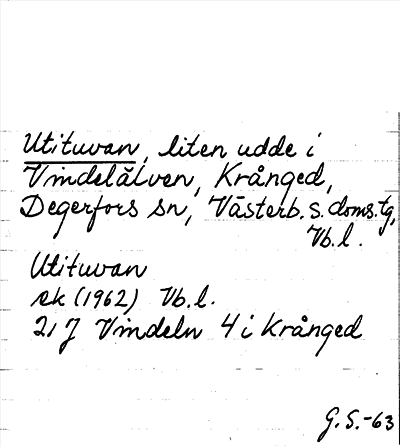 Utituvan, liten udde i
Vindelälven, Krånged,
Degerfors sn, Västerb. s. doms. tg,
Vb. l.
Utituvan
ek (1962) Vb. l.
21 J Vindeln 4 i Krånged
G. S. -63